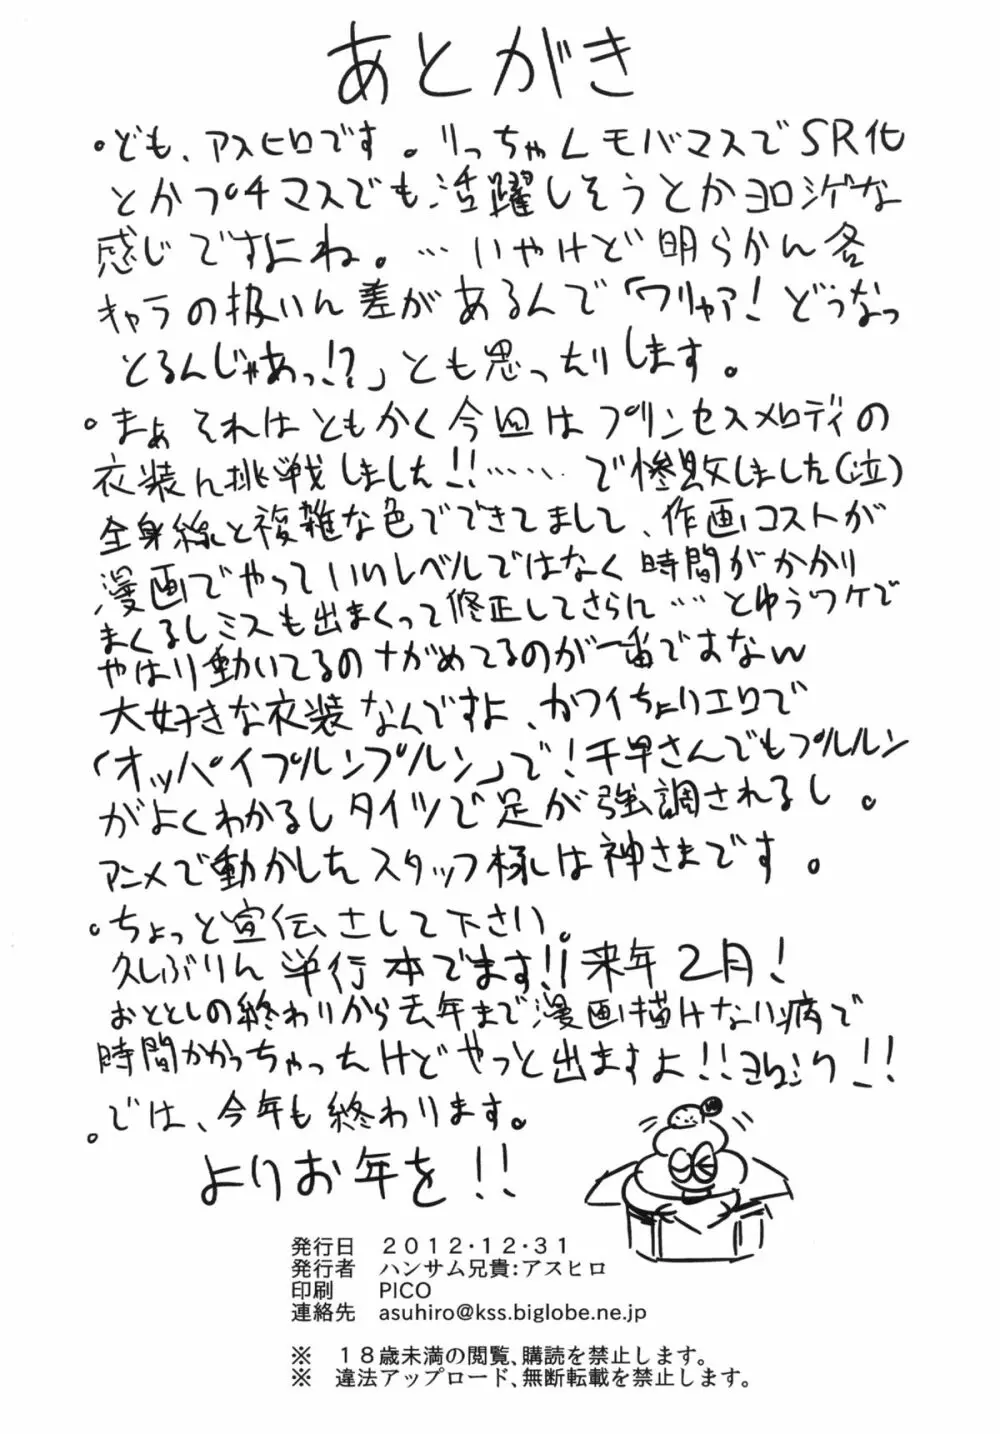 あとがき
・ども、アスヒロです。りっちゃんモバマスでSR化
とかプチマスでも活躍しそうとかヨロシゲな
感じですよね。…いやけど明らかん各
キャラの扱いん差があるんで「ワリャア!どうなっ
とるんじゃあっ!?」とも思ったりします。
・まぁそれはともかく今回はプリンセスメロディの
衣装ん挑戦しました!!……で惨敗しました(泣)
全身線と複雑な色でできてまして、作画コストが
漫画でやっていいレベルではなく時間がかかり
まくるしミスも出まくって修正してさらに…とゆうワケで
やはり動いてるのナがめてるのが一番ですなw
大好きな衣装なんですよ、カワイちょりエロで
「オッパイプルンプルン」で!千早さんでもプルルン
がよくわかるしタイツで足が強調されるし。
アニメで動かしたスタッフ様しは神さまです。
・ちょっと宣伝さして下さい。
久しぶりん単行本でます!!来年2月!
おととしの終わりから去年まで漫画描けない病で
時間かかっちゃったけどやっと出ますよ!!ヨロシク!!
。では、今年も終わります。
よりお年を!!
発行日 2012・12・31
発行者 ハンサム兄貴:アスヒロ
印刷 PICO
連絡先 asuhiro@kss.biglobe.ne.jp
※ 18歳未満の閲覧、購読を禁止します。
※ 違法アップロード、無断転載を禁止します。